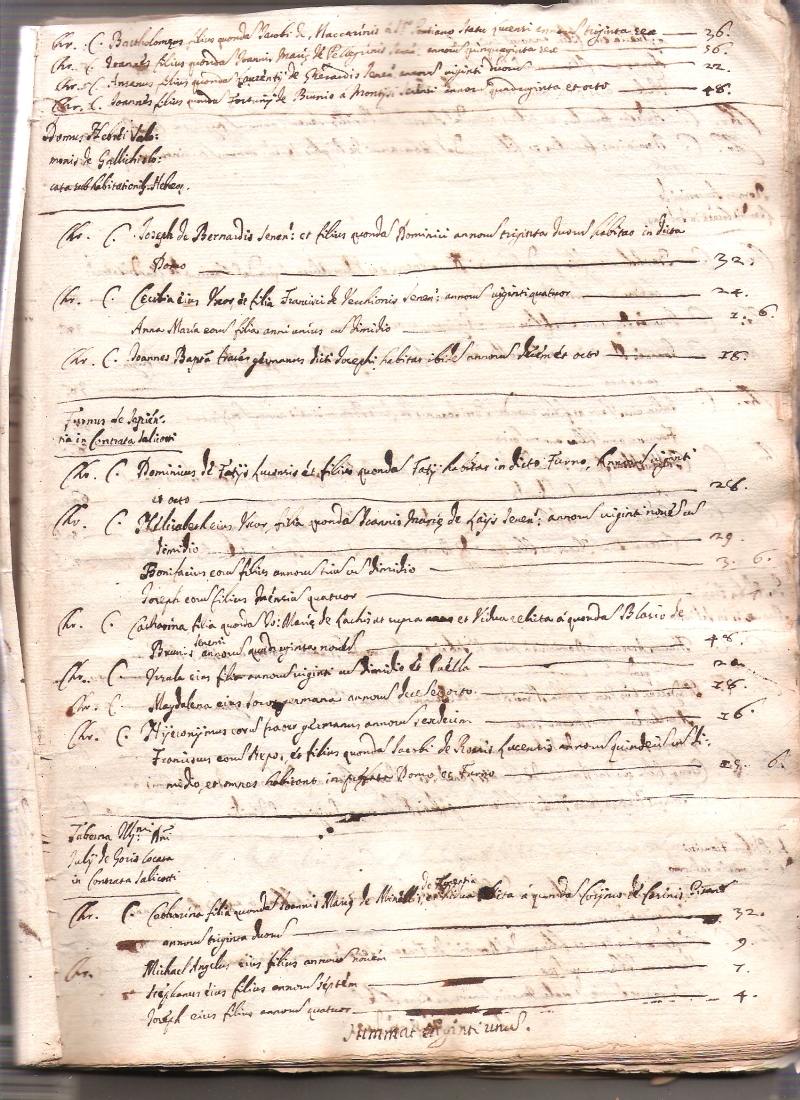 Chr. C. Bartholomeus filius quondam Jacobi de Maccarinis à Sto Status annorum triginta sex 36.
Chr. C. Joannes filius quondam Joannis Mariæ de Pellegrinis Senen: annorum quinquaginta sex 56.
Chr. C. Ansanus filius quondam Laurentij de Gherardis Senen: annorum viginti duorum 22.
Chr. C. Joannes filius quondam Fortunij de annorum quadraginta et octo 48.
Domus
monis de Gallichi lo:
cata sub habitationib. Hebreor.
Chr. C. Joseph de Bernardis Senen: et filius quondam Dominici annorum triginta duorum habitao in dicta
Domo 32.
Chr. C. Cecilia eius Uxor et filia Francisci de Vecchionis Senen: annorum viginti quatuor 24.
Anna Maria eorum filia anni unius cum dimidio 1. 6.
Chr. C. Joannes Bapta frater germanus dicti Josephi habitat ibidem annorum decem et octo 18.
Furnus de Sapien:
tia in Contrata Salicotti
Chr. C. Dominicus de Fatijs Lucensis et filius quondam Fatij habitat in dicto Furno, Annorum viginti
et octo 28.
Chr. C. Helisabeth eius Uxor, filia quondam Joannis Mariæ de Senen: annorum viginti novem cum
dimidio 29.
Bonifacius eorum filius annorum trium cum dimidio 3. 6.
Joseph eorum filius mensium quatuor 4.
Chr. C. Catharina filia quondam Jo: Mariæ de ut supra et Vidua relicta à quondam Blasio de
Brunis Senen: annorum quadraginta novem 48.
Chr. C. Ursula eius filia annorum viginti cum dimidio et Puella
Chr. C. Magdalena eius soror germana annorum decem et octo 18.
Chr. C. Hyeronymus eorum frater germanus annorum sexdecim 16
Franciscus eorum Nepos, et filius quondam Jacobi de Lucensis annorum quindecim cum di:
midio, et omnes habitant in Domo, et Furno 15. 6.
Taberna Illmi Dni
Julij de Goris locata
in Contrata Salicotti
Chr. C. Catharina filia quondam Joannis Mariæ de de Florentia et Vidua relicta à quondam de
annorum triginta duorum 32.
Chr. Michael Angelus eius filius annorum novem 9
Stephanus eius filius annorum septem 7.
Joseph eius filius annorum quatuor 4.
Summat viginti unus.